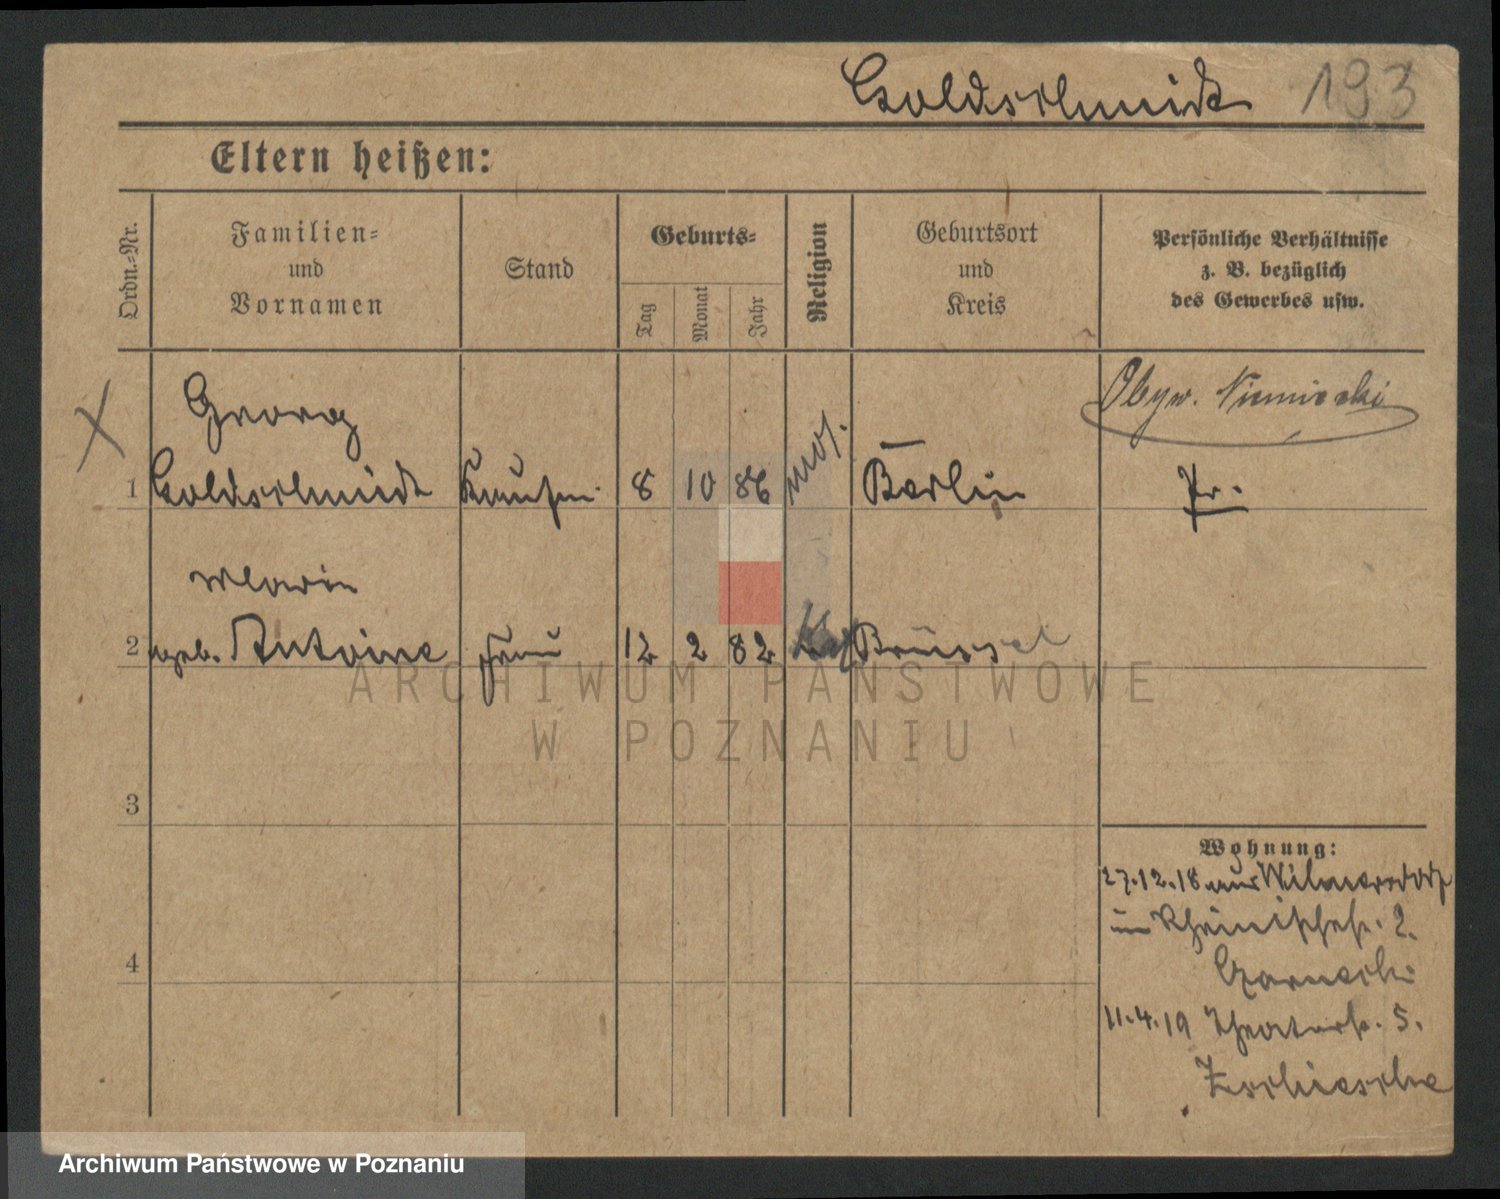 Goldschmidt 193
Eltern heißen:
Ordn.-Nr.
Familien-
und
Vornamen
Stand
Geburts-
Tag
Monat
Jahr
Religion
Geburtsort
und
Kreis
Persönliche Verhältnisse
z. B. bezüglich
des Gewerbes usw.
Obyw. Niemiecki
X
Georg
1 Goldschmidt Kaufm. 8 10 86 mos. Berlin Pr.
Marie
2 geb. Antoine Frau 12 2 82 Brüssel
3
4
Wohnung:
27.12.18 aus Wilmersdorf
in Rheinischestr. 2.
Czarnecki
11.4.19 Theaterstr. 5.
Zschiesche
ARCHIWUM PAŃSTWOWE
W POZNANIU
Archiwum Państwowe w Poznaniu